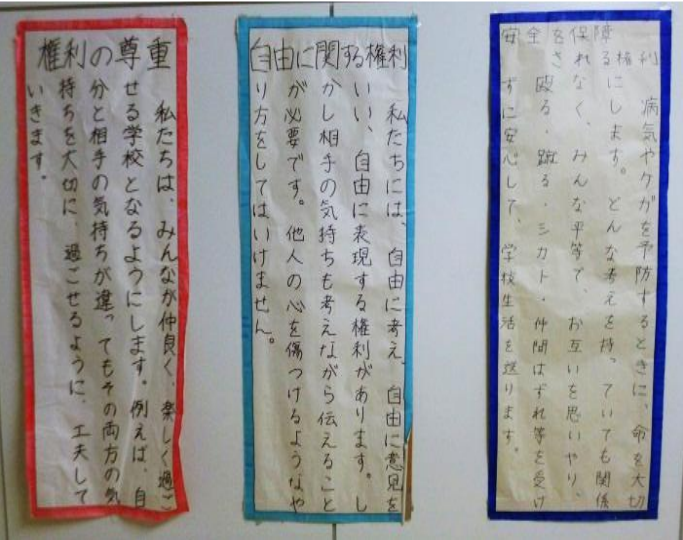 権利の尊重
私たちは、みんなが仲良く、楽しく過ご
せる学校となるようにします。例えば、自
分と相手の気持ちが違ってもその両方の気
持ちを大切に、過ごせるように、工夫して
いきます。
自由に関する権利
私たちには、自由に考え、自由に意見を
いい、自由に表現する権利があります。し
かし相手の気持ちも考えながら伝えること
が必要です。他人の心を傷つけるようなや
り方をしてはいけません。
安全を保障
される権利
病気やケガを予防するときに、命を大切
にします。どんな考えを持っていても関係
なく、みんな平等で、お互いを思いやり、
殴る・蹴る・シカト・仲間はずれ等を受け
ずに安心して、学校生活を送ります。